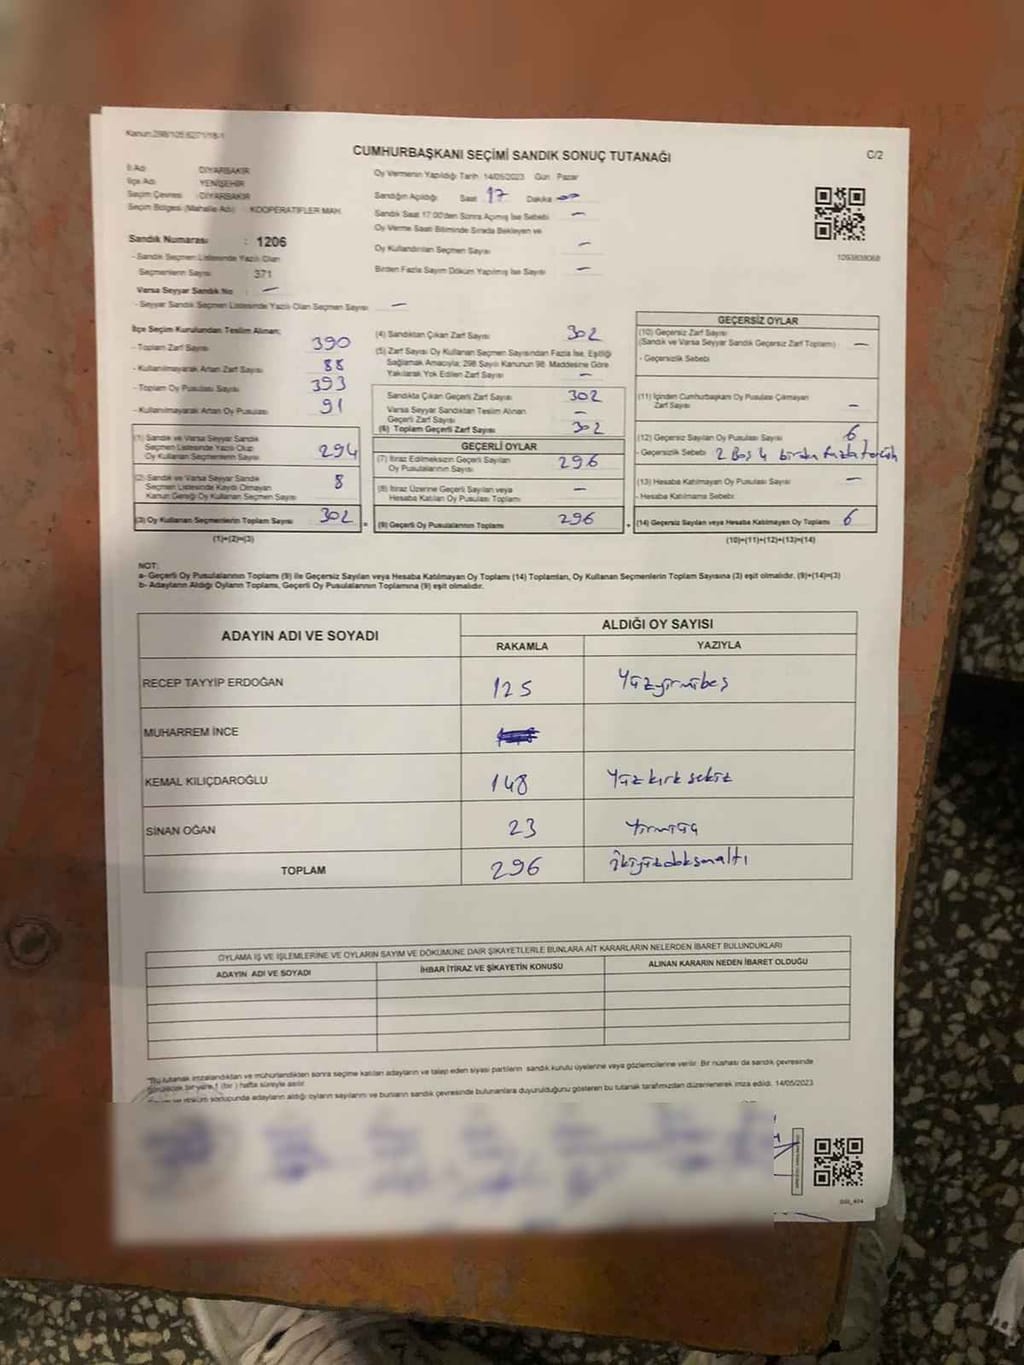 Kanun:298/105,6271/18-1
CUMHURBAŞKANI SEÇİMİ SANDIK SONUÇ TUTANAĞI
C/2
İl Adı DİYARBAKIR
İlçe Adı YENİŞEHİR
Seçim Çevresi : DİYARBAKIR
Seçim Bölgesi (Mahalle Adı) : KOOPERATİFLER MAH.
Oy Vermenin Yapıldığı Tarih: 14/05/2023 Gün: Pazar
Sandığın Açıldığı Saat 17 Dakika 00
Sandık Saat 17:00'den Sonra Açılmış İse Sebebi –
Oy Verme Saati Bitiminde Sırada Bekleyen ve
Oy Kullandırılan Seçmen Sayısı –
Birden Fazla Sayım Döküm Yapılmış İse Sayısı –
1093838068
Sandık Numarası : 1206
- Sandık Seçmen Listesinde Yazılı Olan
Seçmenlerin Sayısı 371
Varsa Seyyar Sandık No : –
- Seyyar Sandık Seçmen Listesinde Yazılı Olan Seçmen Sayısı –
İlçe Seçim Kurulundan Teslim Alınan;
- Toplam Zarf Sayısı 390
- Kullanılmayarak Artan Zarf Sayısı 88
- Toplam Oy Pusulası Sayısı 393
- Kullanılmayarak Artan Oy Pusulası 91
(1) Sandık ve Varsa Seyyar Sandık
Seçmen Listesinde Yazılı Olup
Oy Kullanan Seçmenlerin Sayısı 294
(2) Sandık ve Varsa Seyyar Sandık
Seçmen Listesinde Kaydı Olmayan
Kanun Gereği Oy Kullanan Seçmen Sayısı 8
(3) Oy Kullanan Seçmenlerin Toplam Sayısı 302
(1)+(2)=(3)
(4) Sandıktan Çıkan Zarf Sayısı 302
(5) Zarf Sayısı Oy Kullanan Seçmen Sayısından Fazla İse, Eşitliği
Sağlamak Amacıyla; 298 Sayılı Kanunun 98. Maddesine Göre
Yakılarak Yok Edilen Zarf Sayısı –
Sandıkta Çıkan Geçerli Zarf Sayısı 302
Varsa Seyyar Sandıktan Teslim Alınan
Geçerli Zarf Sayısı –
(6) Toplam Geçerli Zarf Sayısı 302
GEÇERLİ OYLAR
(7) İtiraz Edilmeksizin Geçerli Sayılan
Oy Pusulalarının Sayısı 296
(8) İtiraz Üzerine Geçerli Sayılan veya
Hesaba Katılan Oy Pusulası Toplamı –
(9) Geçerli Oy Pusulalarının Toplamı 296
GEÇERSİZ OYLAR
(10) Geçersiz Zarf Sayısı
(Sandık ve Varsa Seyyar Sandık Geçersiz Zarf Toplamı) –
- Geçersizlik Sebebi
(11) İçinden Cumhurbaşkanı Oy Pusulası Çıkmayan
Zarf Sayısı –
(12) Geçersiz Sayılan Oy Pusulası Sayısı 6
- Geçersizlik Sebebi 2 Boş 4 birden fazla tercih
(13) Hesaba Katılmayan Oy Pusulası Sayısı –
- Hesaba Katılmama Sebebi
(14) Geçersiz Sayılan veya Hesaba Katılmayan Oy Toplamı 6
(10)+(11)+(12)+(13)=(14)
NOT:
a- Geçerli Oy Pusulalarının Toplamı (9) ile Geçersiz Sayılan veya Hesaba Katılmayan Oy Toplamı (14) Toplamları, Oy Kullanan Seçmenlerin Toplam Sayısına (3) eşit olmalıdır. (9)+(14)=(3)
b- Adayların Aldığı Oyların Toplamı, Geçerli Oy Pusulalarının Toplamına (9) eşit olmalıdır.
ADAYIN ADI VE SOYADI
ALDIĞI OY SAYISI
RAKAMLA YAZIYLA
RECEP TAYYİP ERDOĞAN 125 Yüzyirmibeş
MUHARREM İNCE
KEMAL KILIÇDAROĞLU 148 Yüz kırk sekiz
SİNAN OĞAN 23 Yirmiüç
TOPLAM 296 ikiyüzdoksanaltı
OYLAMA İŞ VE İŞLEMLERİNE VE OYLARIN SAYIM VE DÖKÜMÜNE DAİR ŞİKAYETLERLE BUNLARA AİT KARARLARIN NELERDEN İBARET BULUNDUKLARI
ADAYIN ADI VE SOYADI İHBAR İTİRAZ VE ŞİKAYETİN KONUSU ALINAN KARARIN NEDEN İBARET OLDUĞU
"Bu tutanak imzalandıktan ve mühürlendikten sonra seçime katılan adayların ve talep eden siyasi partilerin sandık kurulu üyelerine veya gözlemcilerine verilir. Bir nüshası da sandık çevresinde
görülecek bir yere 1 (bir) hafta süreyle asılır.
döküm sonucunda adayların aldığı oyların sayılarını ve bunların sandık çevresinde bulunanlara duyurulduğunu gösteren bu tutanak tarafımızdan düzenlenerek imza edildi. 14/05/2023